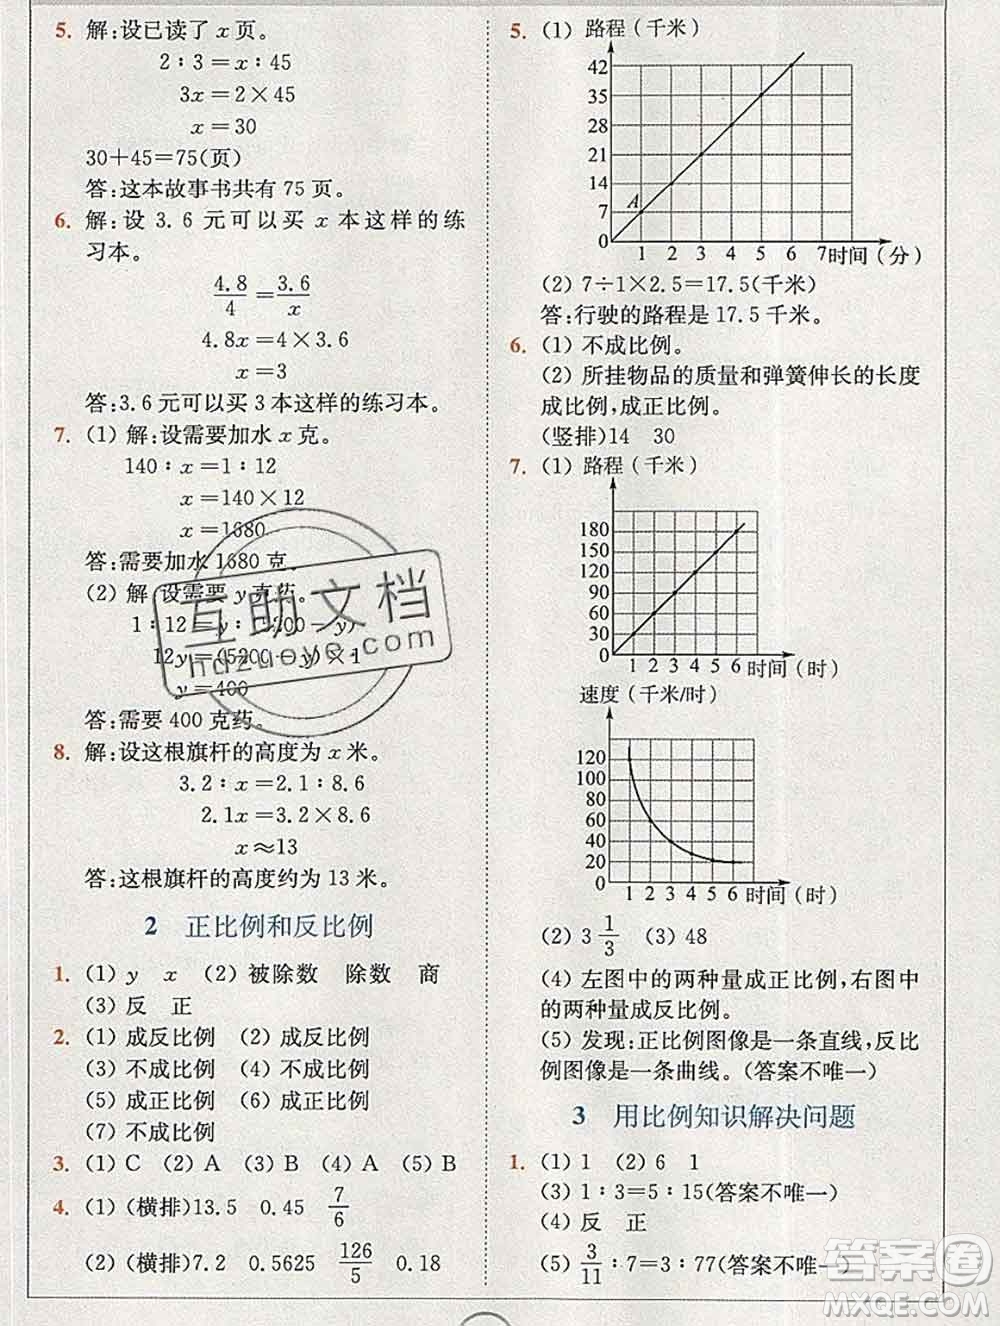 5. 解:设已读了 x 页。
2∶3=x∶45
3x=2×45
x=30
30+45=75(页)
答:这本故事书共有 75 页。
6. 解:设 3.6 元可以买 x 本这样的练
习本。
4.8/4=3.6/x
4.8x=4×3.6
x=3
答:3.6 元可以买 3 本这样的练习本。
7. (1) 解:设需要加水 x 克。
140∶x=1∶12
x=140×12
x=1680
答:需要加水 1680 克。
(2) 解:设需要 y 克药。
1∶12=y∶(5200-y)
12y=(5200-y)×1
y=400
答:需要 400 克药。
8. 解:设这根旗杆的高度为 x 米。
3.2∶x=2.1∶8.6
2.1x=3.2×8.6
x≈13
答:这根旗杆的高度约为 13 米。
2 正比例和反比例
1. (1) y x (2) 被除数 除数 商
(3) 反 正
2. (1) 成反比例 (2) 成反比例
(3) 不成比例 (4) 不成比例
(5) 成正比例 (6) 成正比例
(7) 不成比例
3. (1) C (2) A (3) B (4) A (5) B
4. (1) (横排)13.5 0.45 7/6
(2) (横排)7.2 0.5625 126/5 0.18
5. (1) 路程(千米)
42
35
28
21
14
7
A
0
1 2 3 4 5 6 7 时间(分)
(2) 7÷1×2.5=17.5(千米)
答:行驶的路程是 17.5 千米。
6. (1) 不成比例。
(2) 所挂物品的质量和弹簧伸长的长度
成比例,成正比例。
(竖排)14 30
7. (1) 路程(千米)
180
150
120
90
60
30
0
1 2 3 4 5 6 时间(时)
速度(千米/时)
120
100
80
60
40
20
0
1 2 3 4 5 6 时间(时)
(2) 3 1/3 (3) 48
(4) 左图中的两种量成正比例,右图中
的两种量成反比例。
(5) 发现:正比例图像是一条直线,反比
例图像是一条曲线。(答案不唯一)
3 用比例知识解决问题
1. (1) 1 (2) 6 1
(3) 1∶3=5∶15(答案不唯一)
(4) 反 正
(5) 3/11∶7=3∶77(答案不唯一)
互助文档
hdzuoye.com
答案圈
MXQE.COM